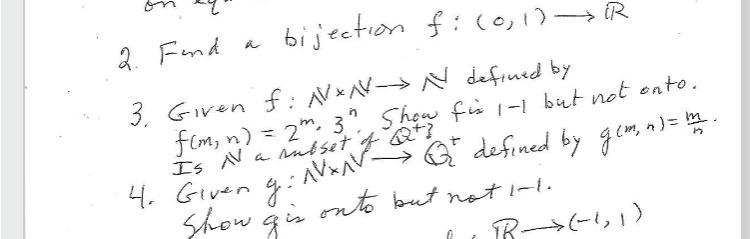 2. Find a bijection f: (0,1) → ℝ
3. Given f: N×N → N defined by
f(m,n) = 2^m. 3^n. Show f is 1-1 but not onto.
Is N a subset of Q^+?
4. Given g: N×N → Q^+ defined by g(m,n) = m/n.
Show g is onto but not 1-1.
ℝ → (-1,1)